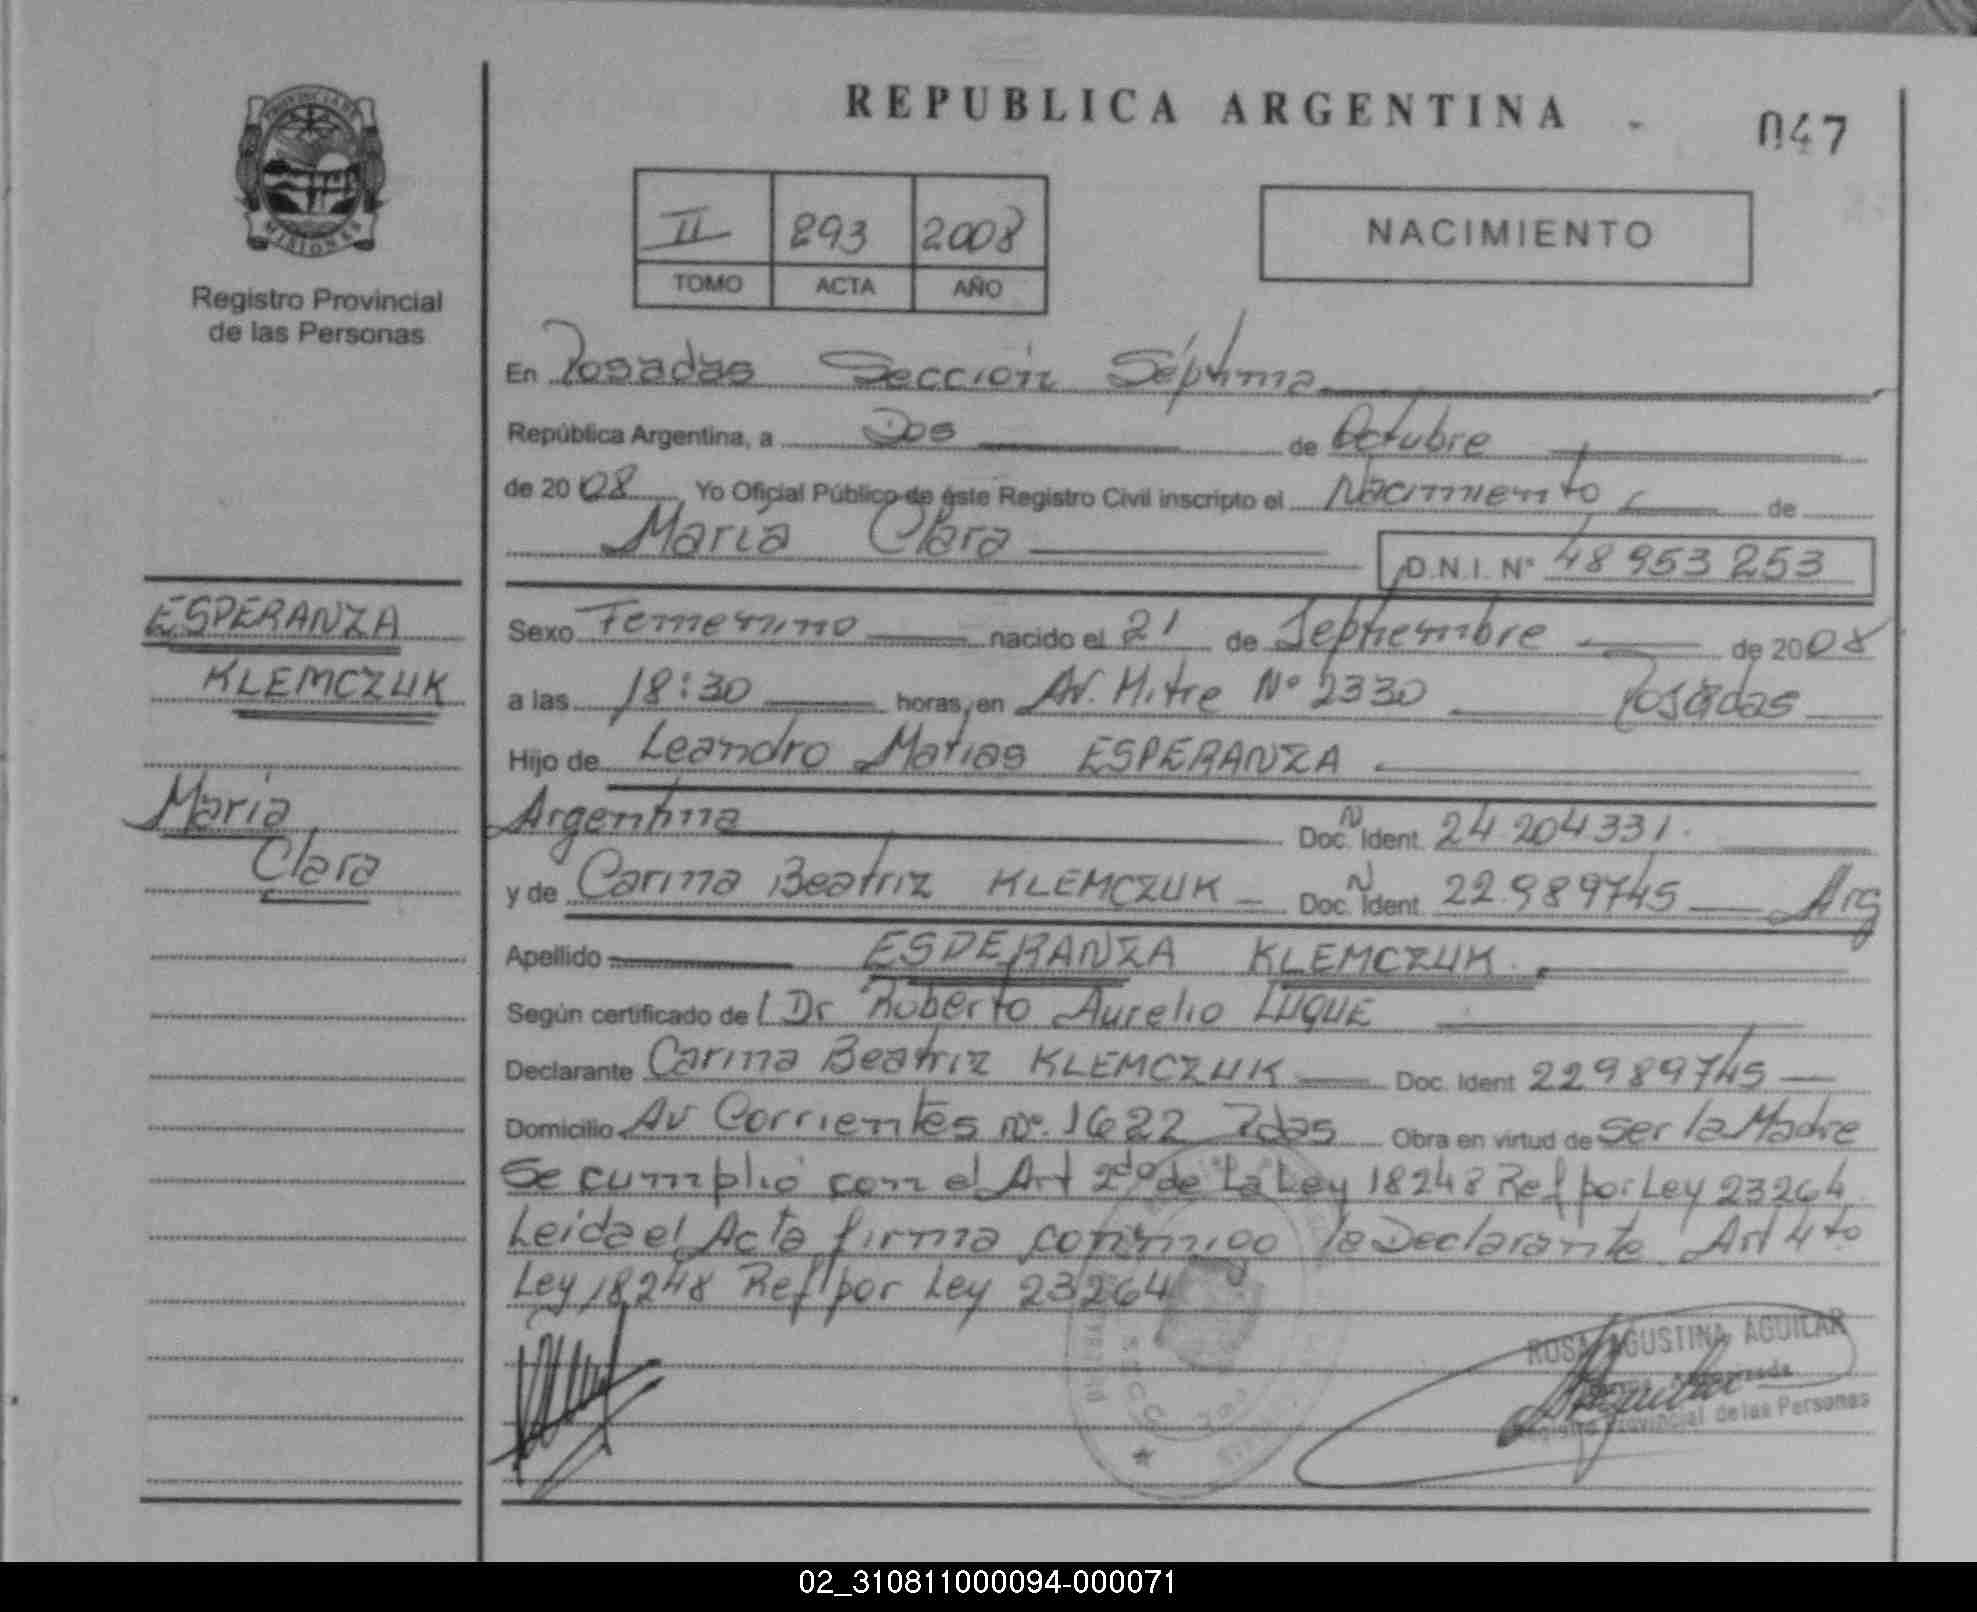 REPUBLICA ARGENTINA
047
PROVINCIA DE
MISIONES
Registro Provincial
de las Personas
II 293 2008
TOMO ACTA AÑO
NACIMIENTO
En Posadas Sección Séptima
República Argentina, a Dos de Octubre
de 2008 Yo Oficial Público de éste Registro Civil inscripto el Nacimiento de
María Clara
D.N.I. Nº 48 953 253
ESPERANZA
KLEMCZUK
Maria
Clara
Sexo Femenino nacido el 21 de Septiembre de 2008
a las 18:30 horas, en Av. Mitre Nº 2330 Posadas
Hijo de Leandro Matias ESPERANZA
Argentina Doc. N Ident. 24 204 331.
y de Carina Beatriz KLEMCZUK Doc. N Ident. 22.989745 Arg
Apellido ESPERANZA KLEMCZUK.
Según certificado del Dr Roberto Aurelio LUQUE
Declarante Carina Beatriz KLEMCZUK Doc. Ident 22989745
Domicilio Av Corrientes Nº. 1622 Pdas Obra en virtud de ser la Madre
Se cumplió con el Art 2do de La Ley 18248 Ref por Ley 23264
Leida el Acta firma conmigo la Declarante Art 4to
Ley 18248 Ref por Ley 23264
ROSA AGUSTINA AGUILAR
Registro Provincial de las Personas
02_310811000094-000071